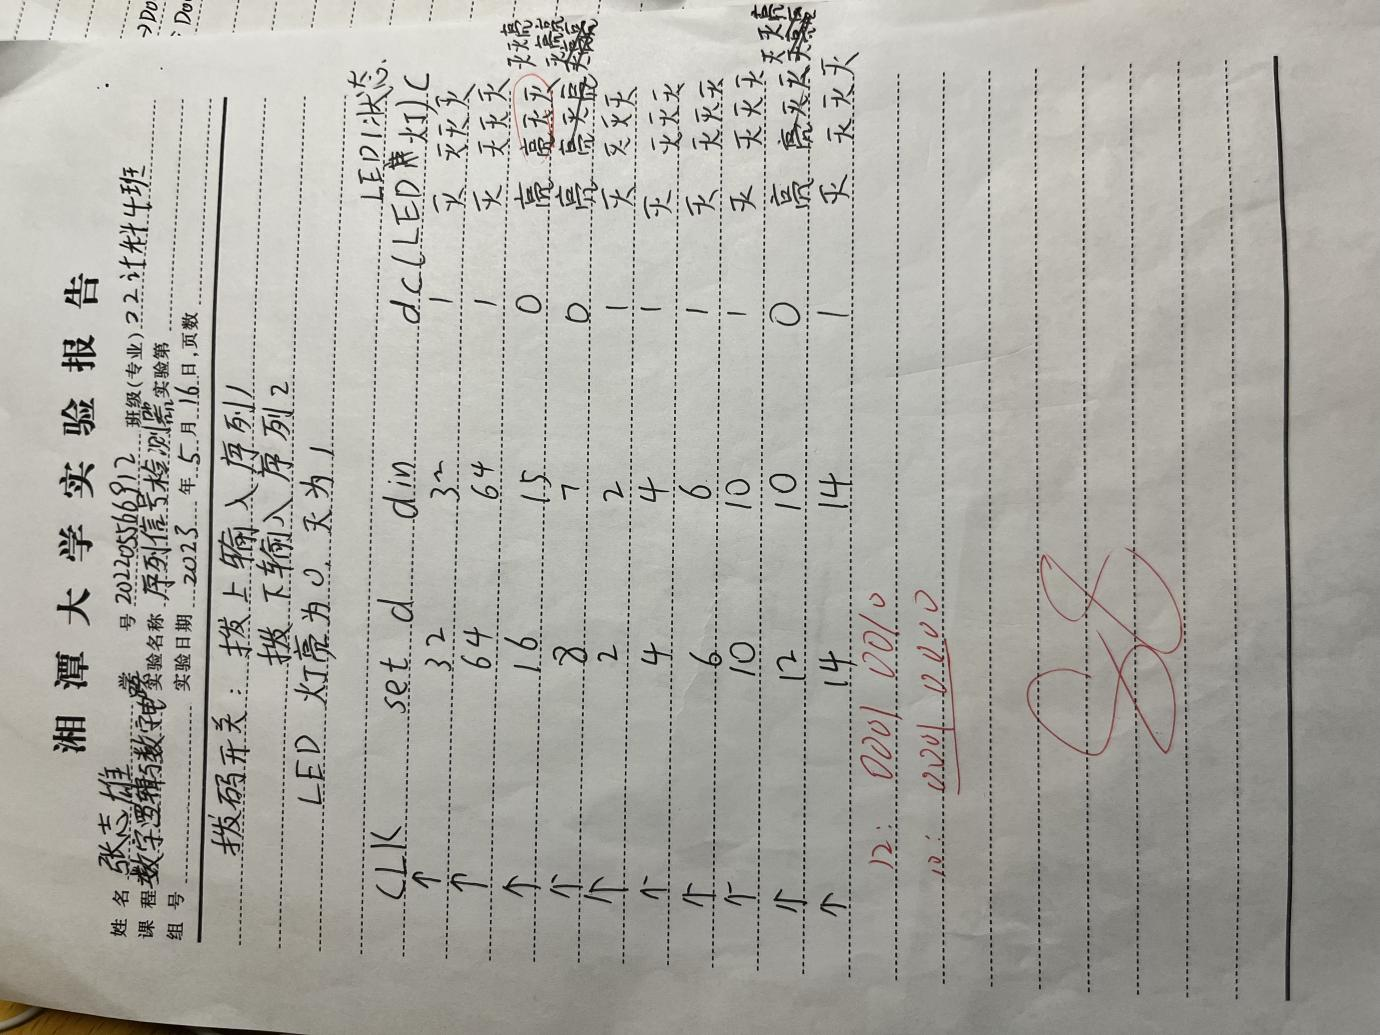 湘潭大学实验报告
姓名 张志雄 学号 202205566812 班级(专业) 22计科4班
课程 数字逻辑与数字电路 实验名称 序列信号检测器 实验第
组号 实验日期 2023年5月16日,页数
拨码开关:拨上输入序列1
拨下输入序列2
LED灯亮为0 灭为1
LED1状态.
CLK set d din dc(LED 灯)C
↑ 32 32 1 灭 灭灭灭
↑ 64 64 1 灭 灭灭灭
↑ 16 15 0 亮 亮灭灭 灭灭亮
↑ 8 7 0 亮
↑ 2 2 1 灭 灭灭灭
↑ 4 4 1 灭 灭灭灭
↑ 6 6 1 灭 灭灭灭
↑ 10 10 1 灭 灭灭灭
↑ 12 10 0 亮 灭灭亮
↑ 14 14 1 灭 灭灭灭
12: 0001 0010
10: 0001 0000